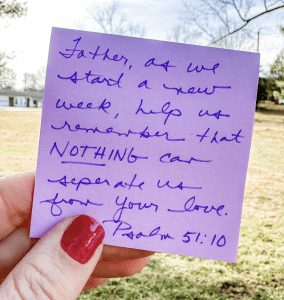 Father, as we
start a new
week, help us
remember that
NOTHING can
seperate us
from your love.
Psalm 51:10